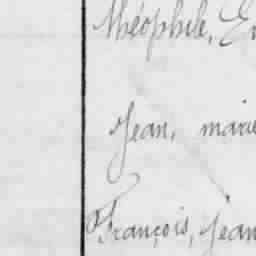 Théophile,
Jean, marie
François, Jean